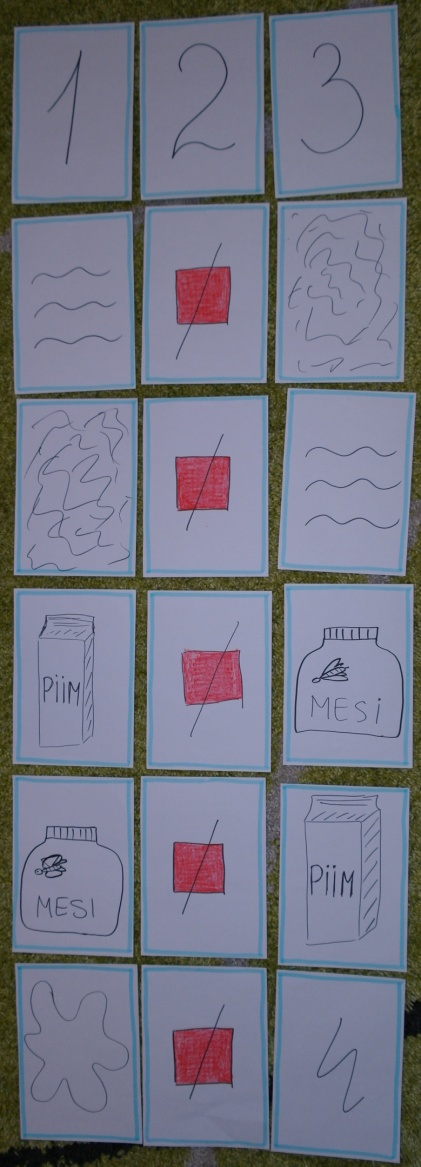 1 2 3
PiiM MESi
MESI PiiM